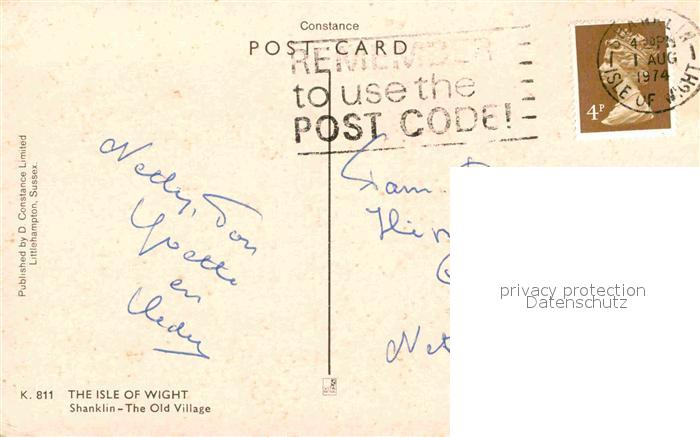 Constance
POST CARD
REMEMBER
to use the
POST CODE!
4.30PM
1 AUG
1974
ISLE OF WIGHT
4P
Published by D. Constance Limited
Littlehampton, Sussex.
Nelly, Ton
Yvette
en
Fam.
privacy protection
Datenschutz
K. 811 THE ISLE OF WIGHT
Shanklin – The Old Village